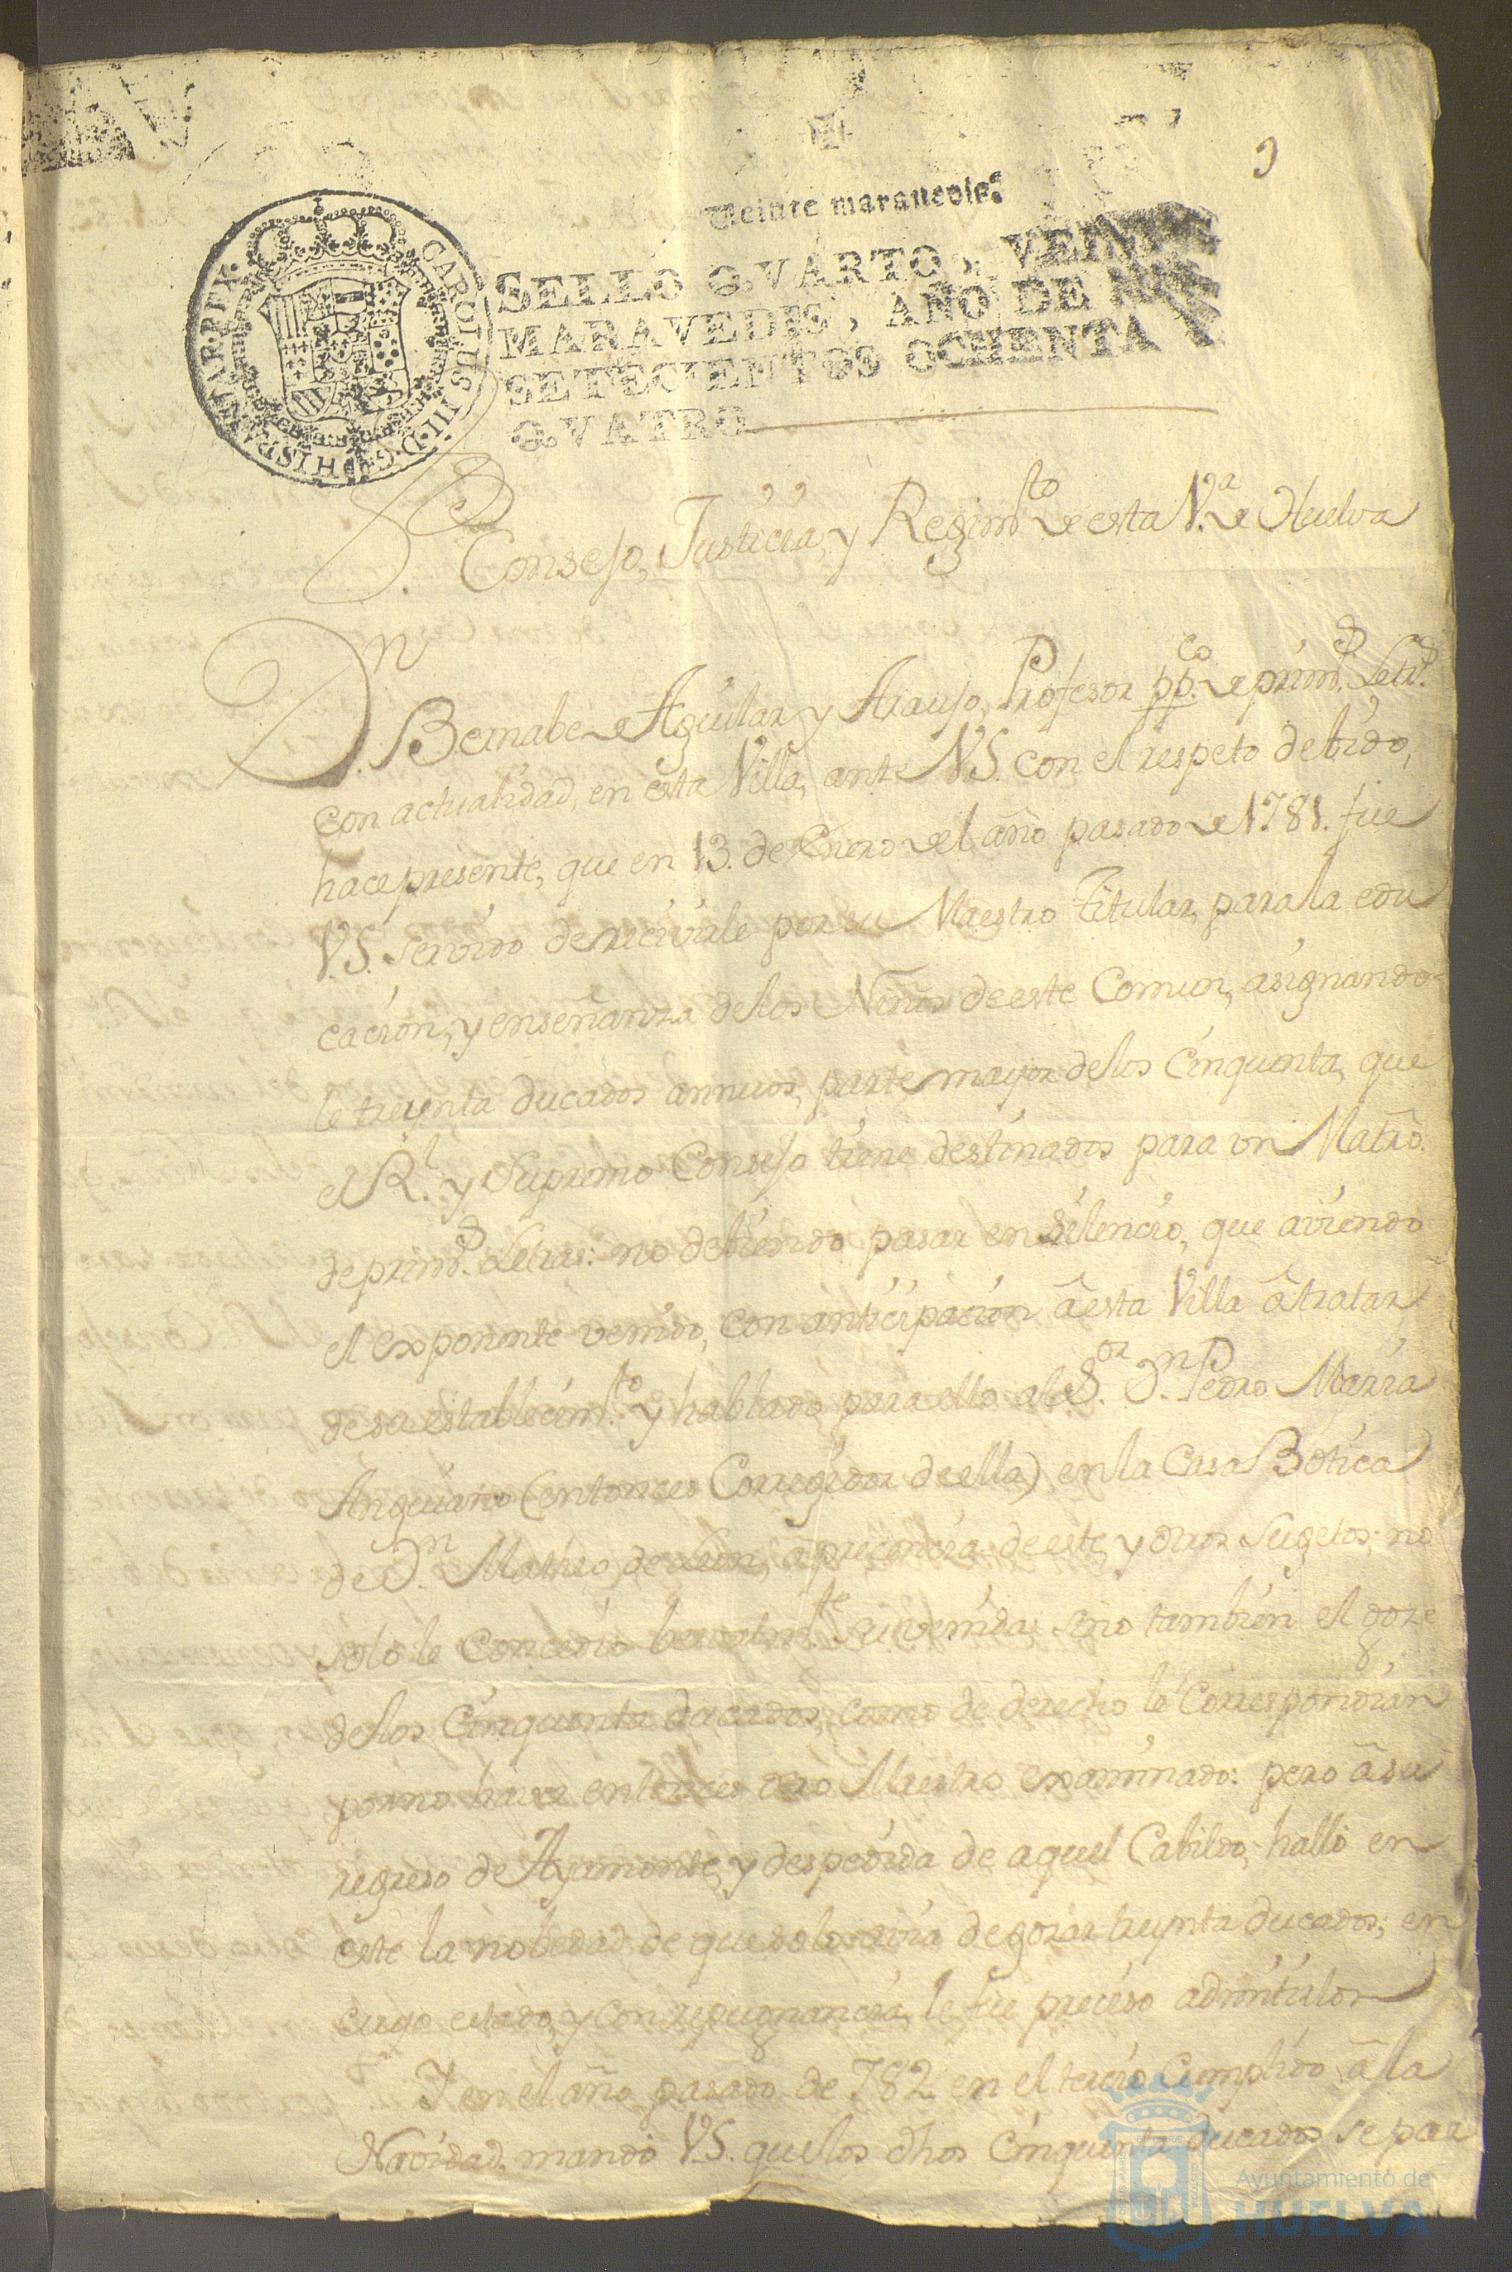 9
Veinte maravedis.
CAROLUS III D G HISPANIAR REX
SELLO QVARTO, VEINTE
MARAVEDIS, AÑO DE MIL
SETECIENTOS OCHENTA Y
QVATRO
Consejo, Justicia, y Regim.to de esta V.a de Huelva
D.n Bernabe de Aguilar y Araujo, Profesor pp.co de prim.s Letr.s
con actualidad, en esta Villa, ante V.S. con el respeto debido,
hace presente, que en 13. de Enero del año pasado de 1781. fue
V.S. servido de recivirle por su Maestro Titular, para la edu
cacion, y enseñanza de los Niños de este Comun, asignando-
le treynta ducados annuos, parte mayor de los Cinquenta, que
el R.l y Supremo Consejo tiene destinados para un Matrõ.
de prim.s Letras: no debiendo pasar en silencio, que aviendo
el exponente venido, con anticipacion â esta Villa â tratar
de su establecim.to y hablado para ello al S.or D.n Pedro Maria
Anguiano (entonces Corregidor de ella) en la Casa Botica
de D.n Matheo de Leon, a presencia de este, y otros Sugetos; no
solo le concedio su venida, sino tambien el goze
de los Cinquenta ducados, como de derecho le correspondian
por no haver entonces otro Maestro examinado: pero â su
regreso de Ayamonte, y despedida de aquel Cabildo, halló en
este la nobedad de que solo avia de gozar treynta ducados; en
cuyo estado, y con repugnancia, le fue preciso admitirlos
Y en el año pasado de 782 en el tercio Cumplido â la
Navidad, mandó V.S. que los dhos Cinquenta ducados se par
Ayuntamiento de
HUELVA